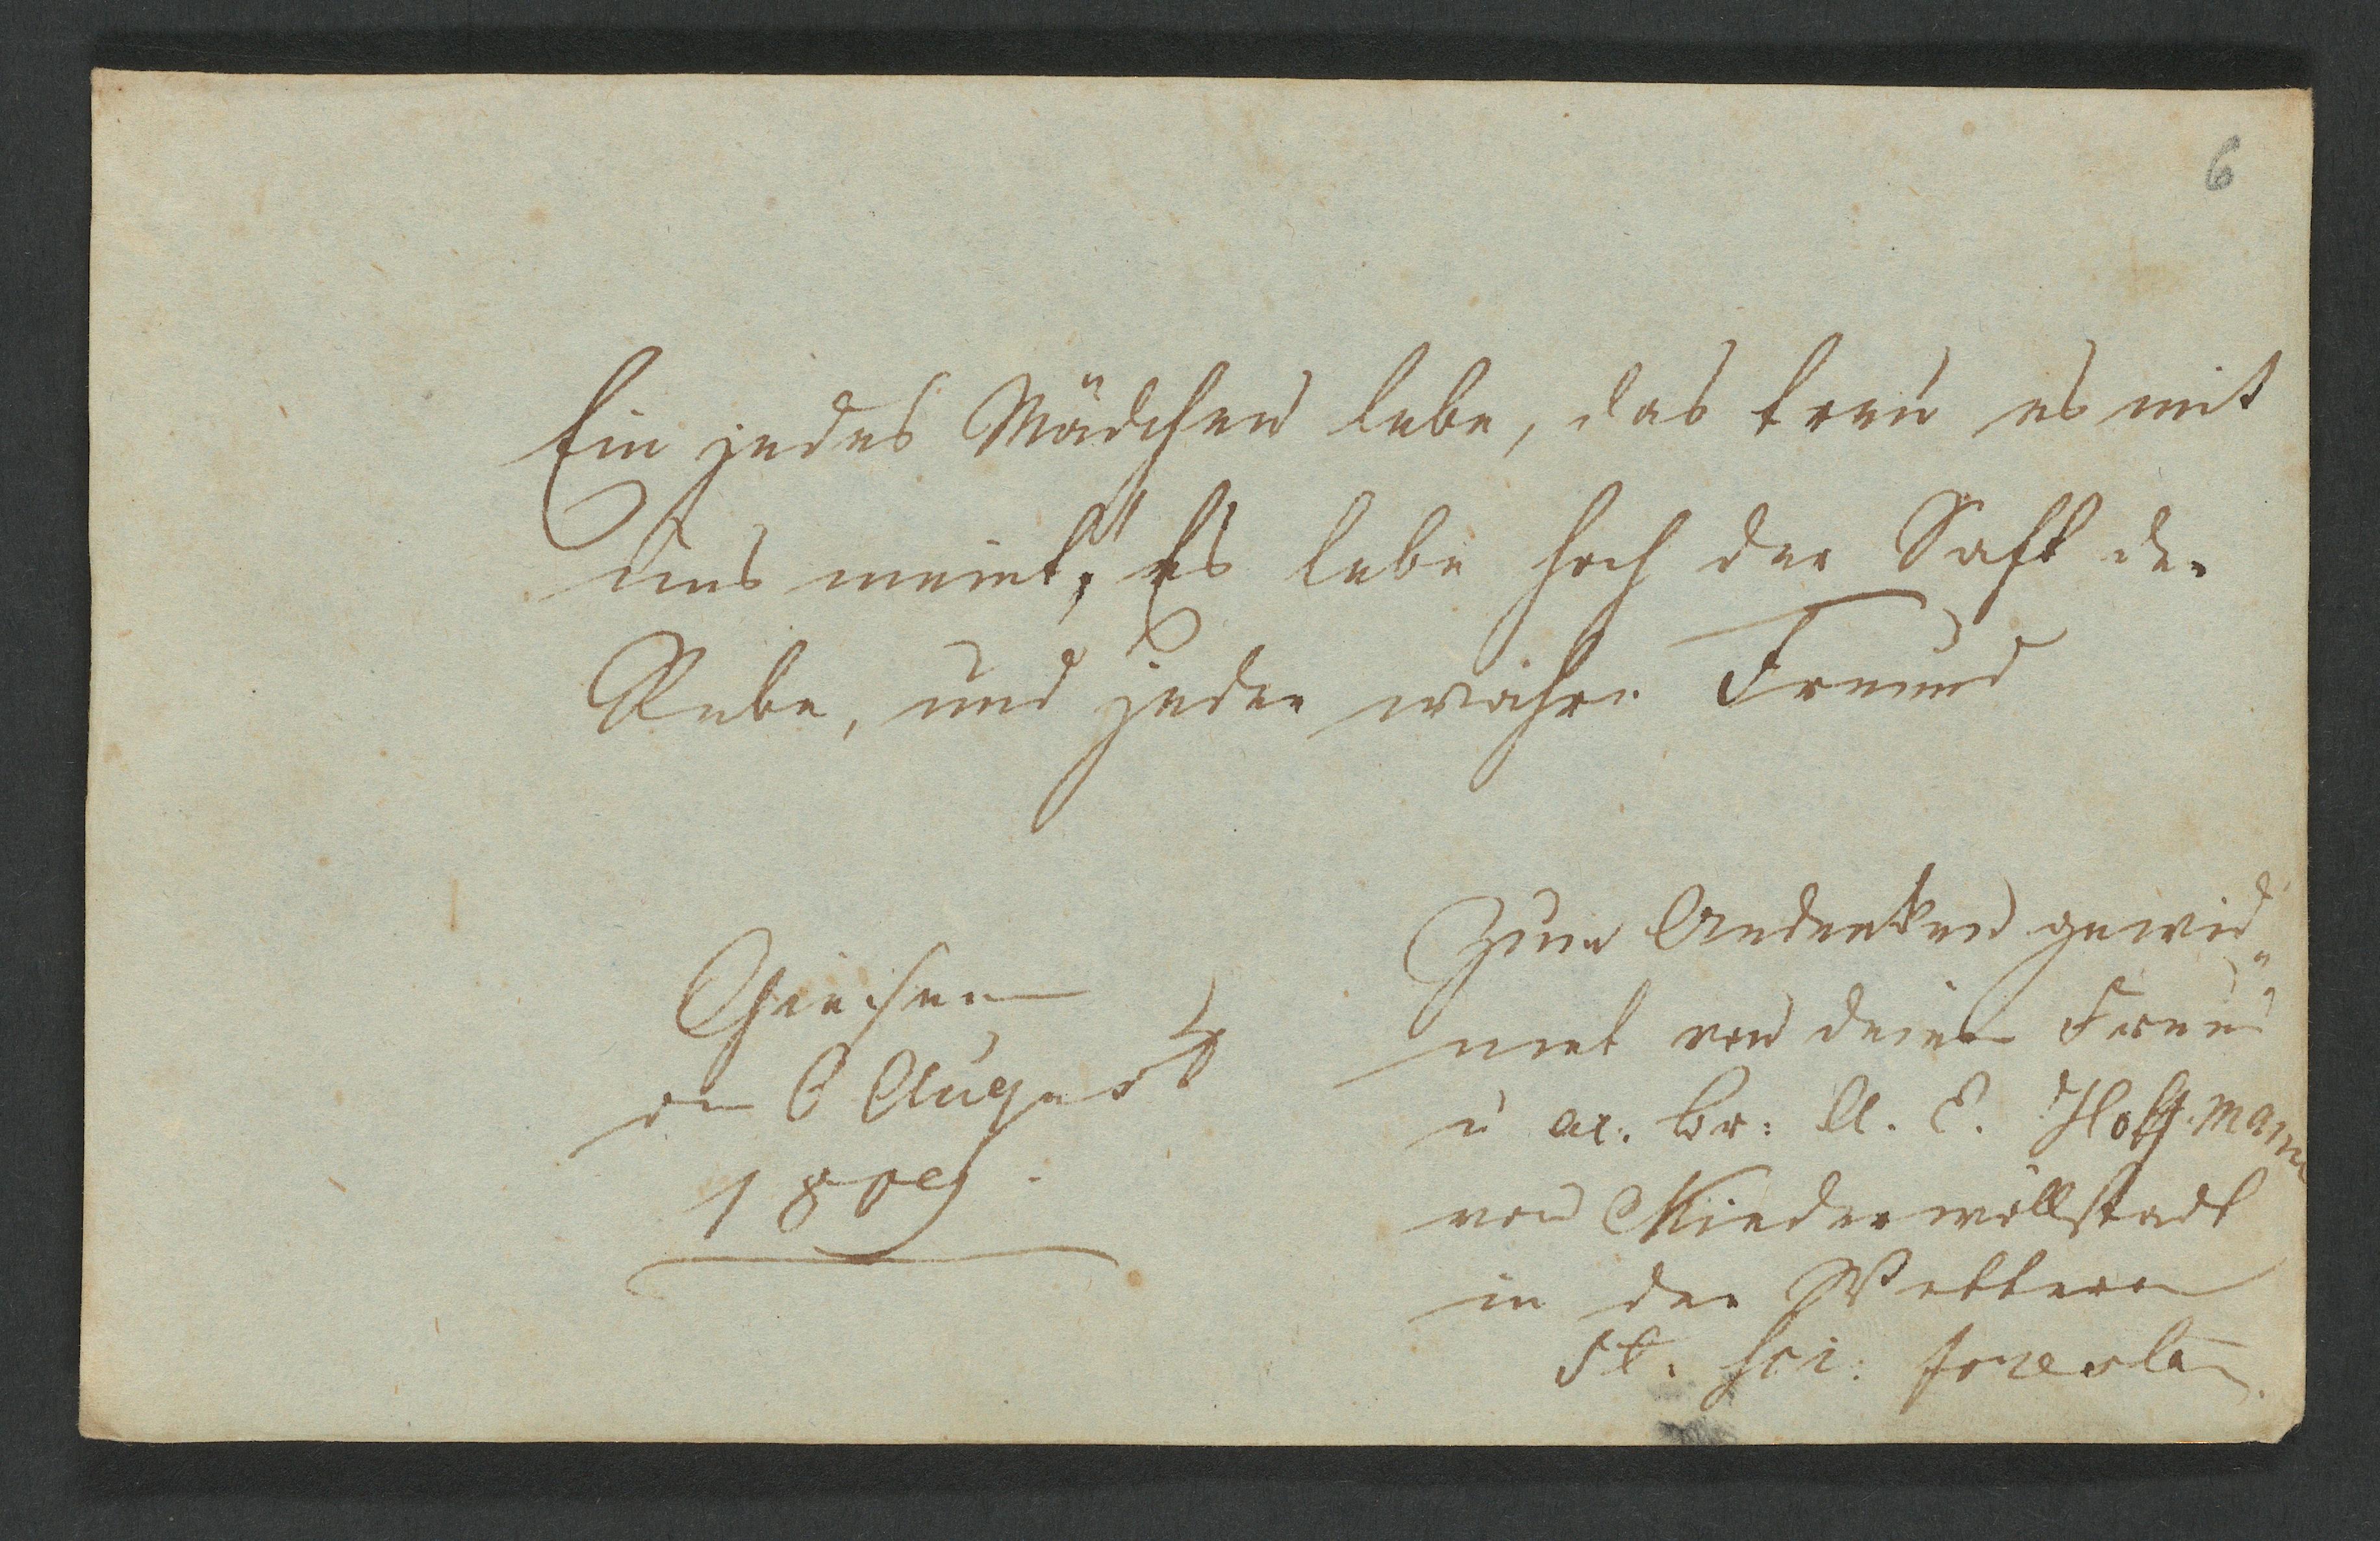 6
Ein jedes Mädchen lebe, das treu es mit
uns meint, Es lebe hoch der Saft der
Rebe, und jeder wahre Freund
Giesen
den 6 August
1809.
Zum Andenken gewid
met von deinem Freund
u ac. Br: A. E. Hoffmann
von Niederwöllstadt
in der Wetterau
St. sci: forestal.